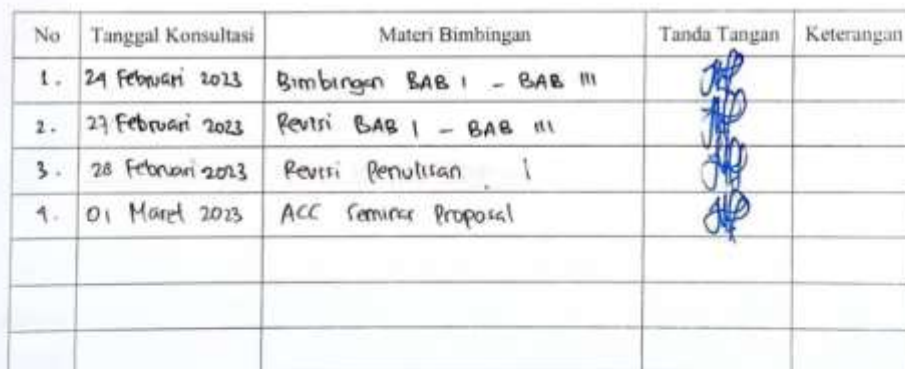 No Tanggal Konsultasi Materi Bimbingan Tanda Tangan Keterangan
1. 24 Februari 2023 Bimbingan BAB I - BAB III
2. 27 Februari 2023 Revisi BAB I - BAB III
3. 28 Februari 2023 Revisi Penulisan
4. 01 Maret 2023 ACC Seminar Proposal